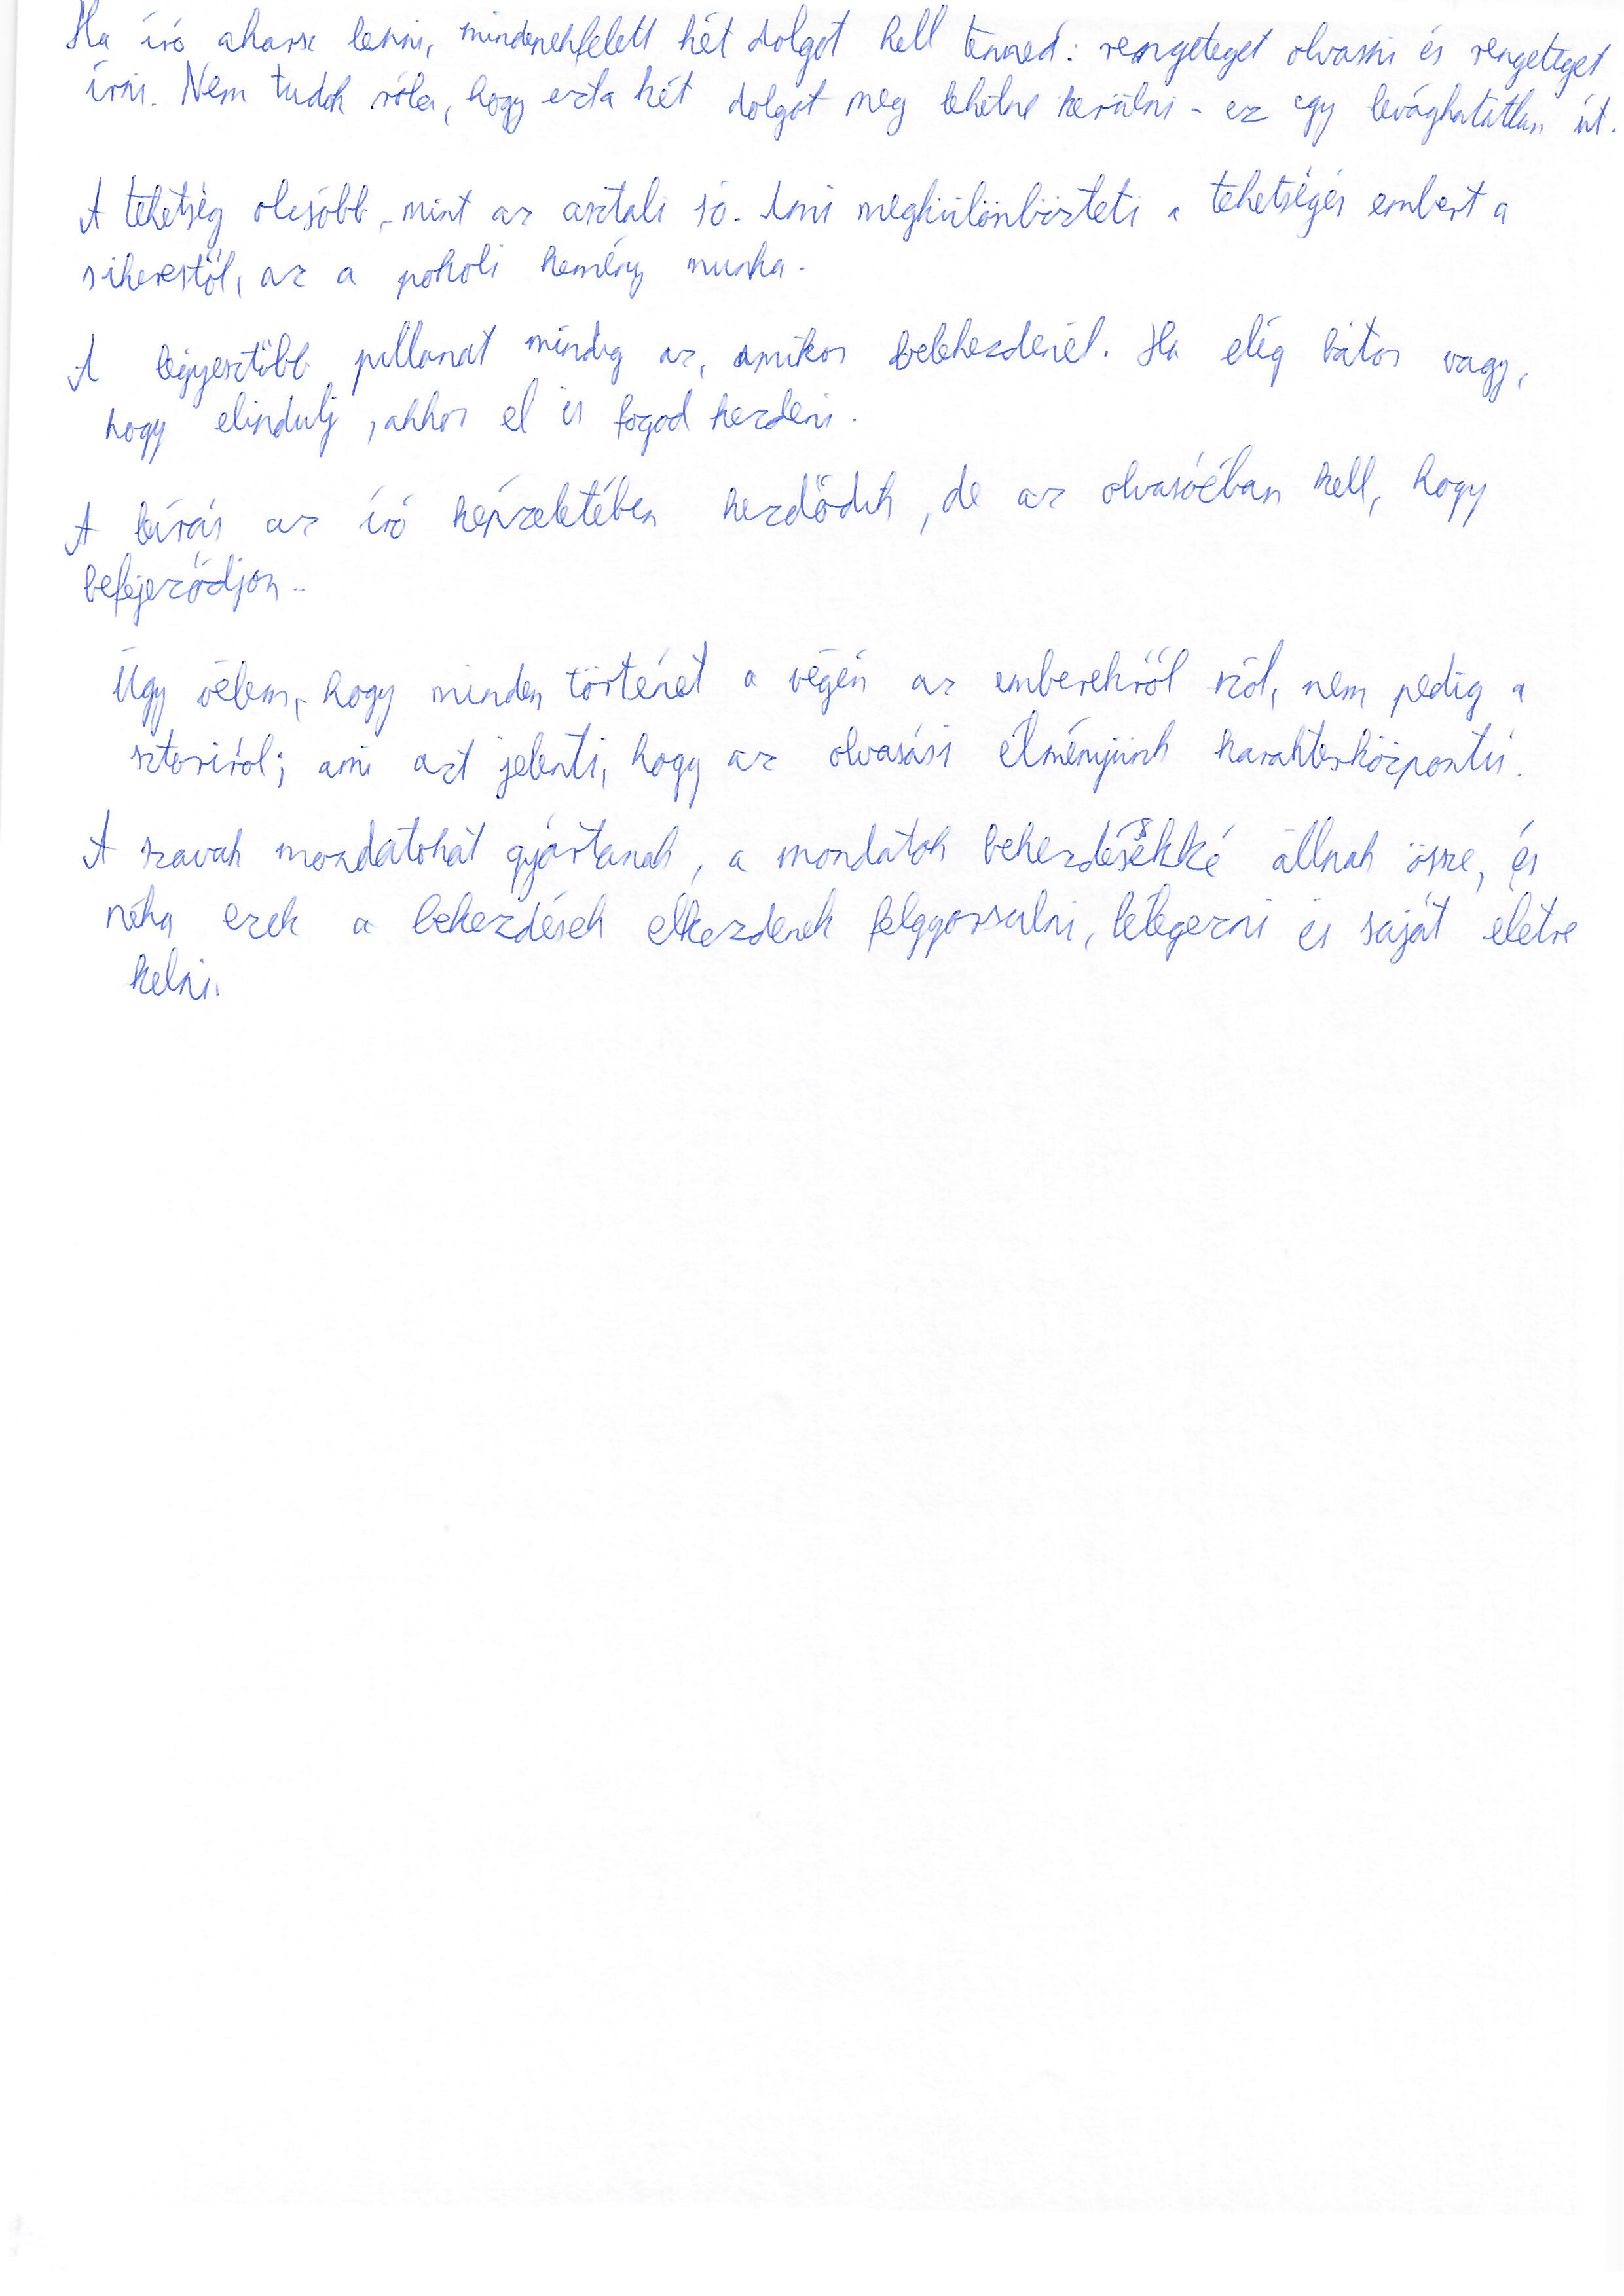 Ha író akarsz lenni, mindenekfelett két dolgot kell tenned: rengeteget olvasni és rengeteget
írni. Nem tudok róla, hogy ezt a két dolgot meg lehetne kerülni - ez egy levághatatlan út.
A tehetség olcsóbb, mint az asztali só. Ami megkülönbözteti a tehetséges embert a
sikerestől, az a pokoli kemény munka.
A légijesztőbb pillanat mindig az, amikor belekezdenél. Ha elég bátor vagy,
hogy elindulj, akkor el is fogod kezdeni.
A leírás az író képzeletében kezdődik, de az olvasóéban kell, hogy
befejeződjön..
Úgy vélem, hogy minden történet a végén az emberekről szól, nem pedig a
sztoriról; ami azt jelenti, hogy az olvasási élményünk karakterközpontú.
A szavak mondatokat gyártanak, a mondatok bekezdésekké állnak össze, és
néha ezek a bekezdések elkezdenek felgyorsulni, lélegezni és saját életre
kelni.